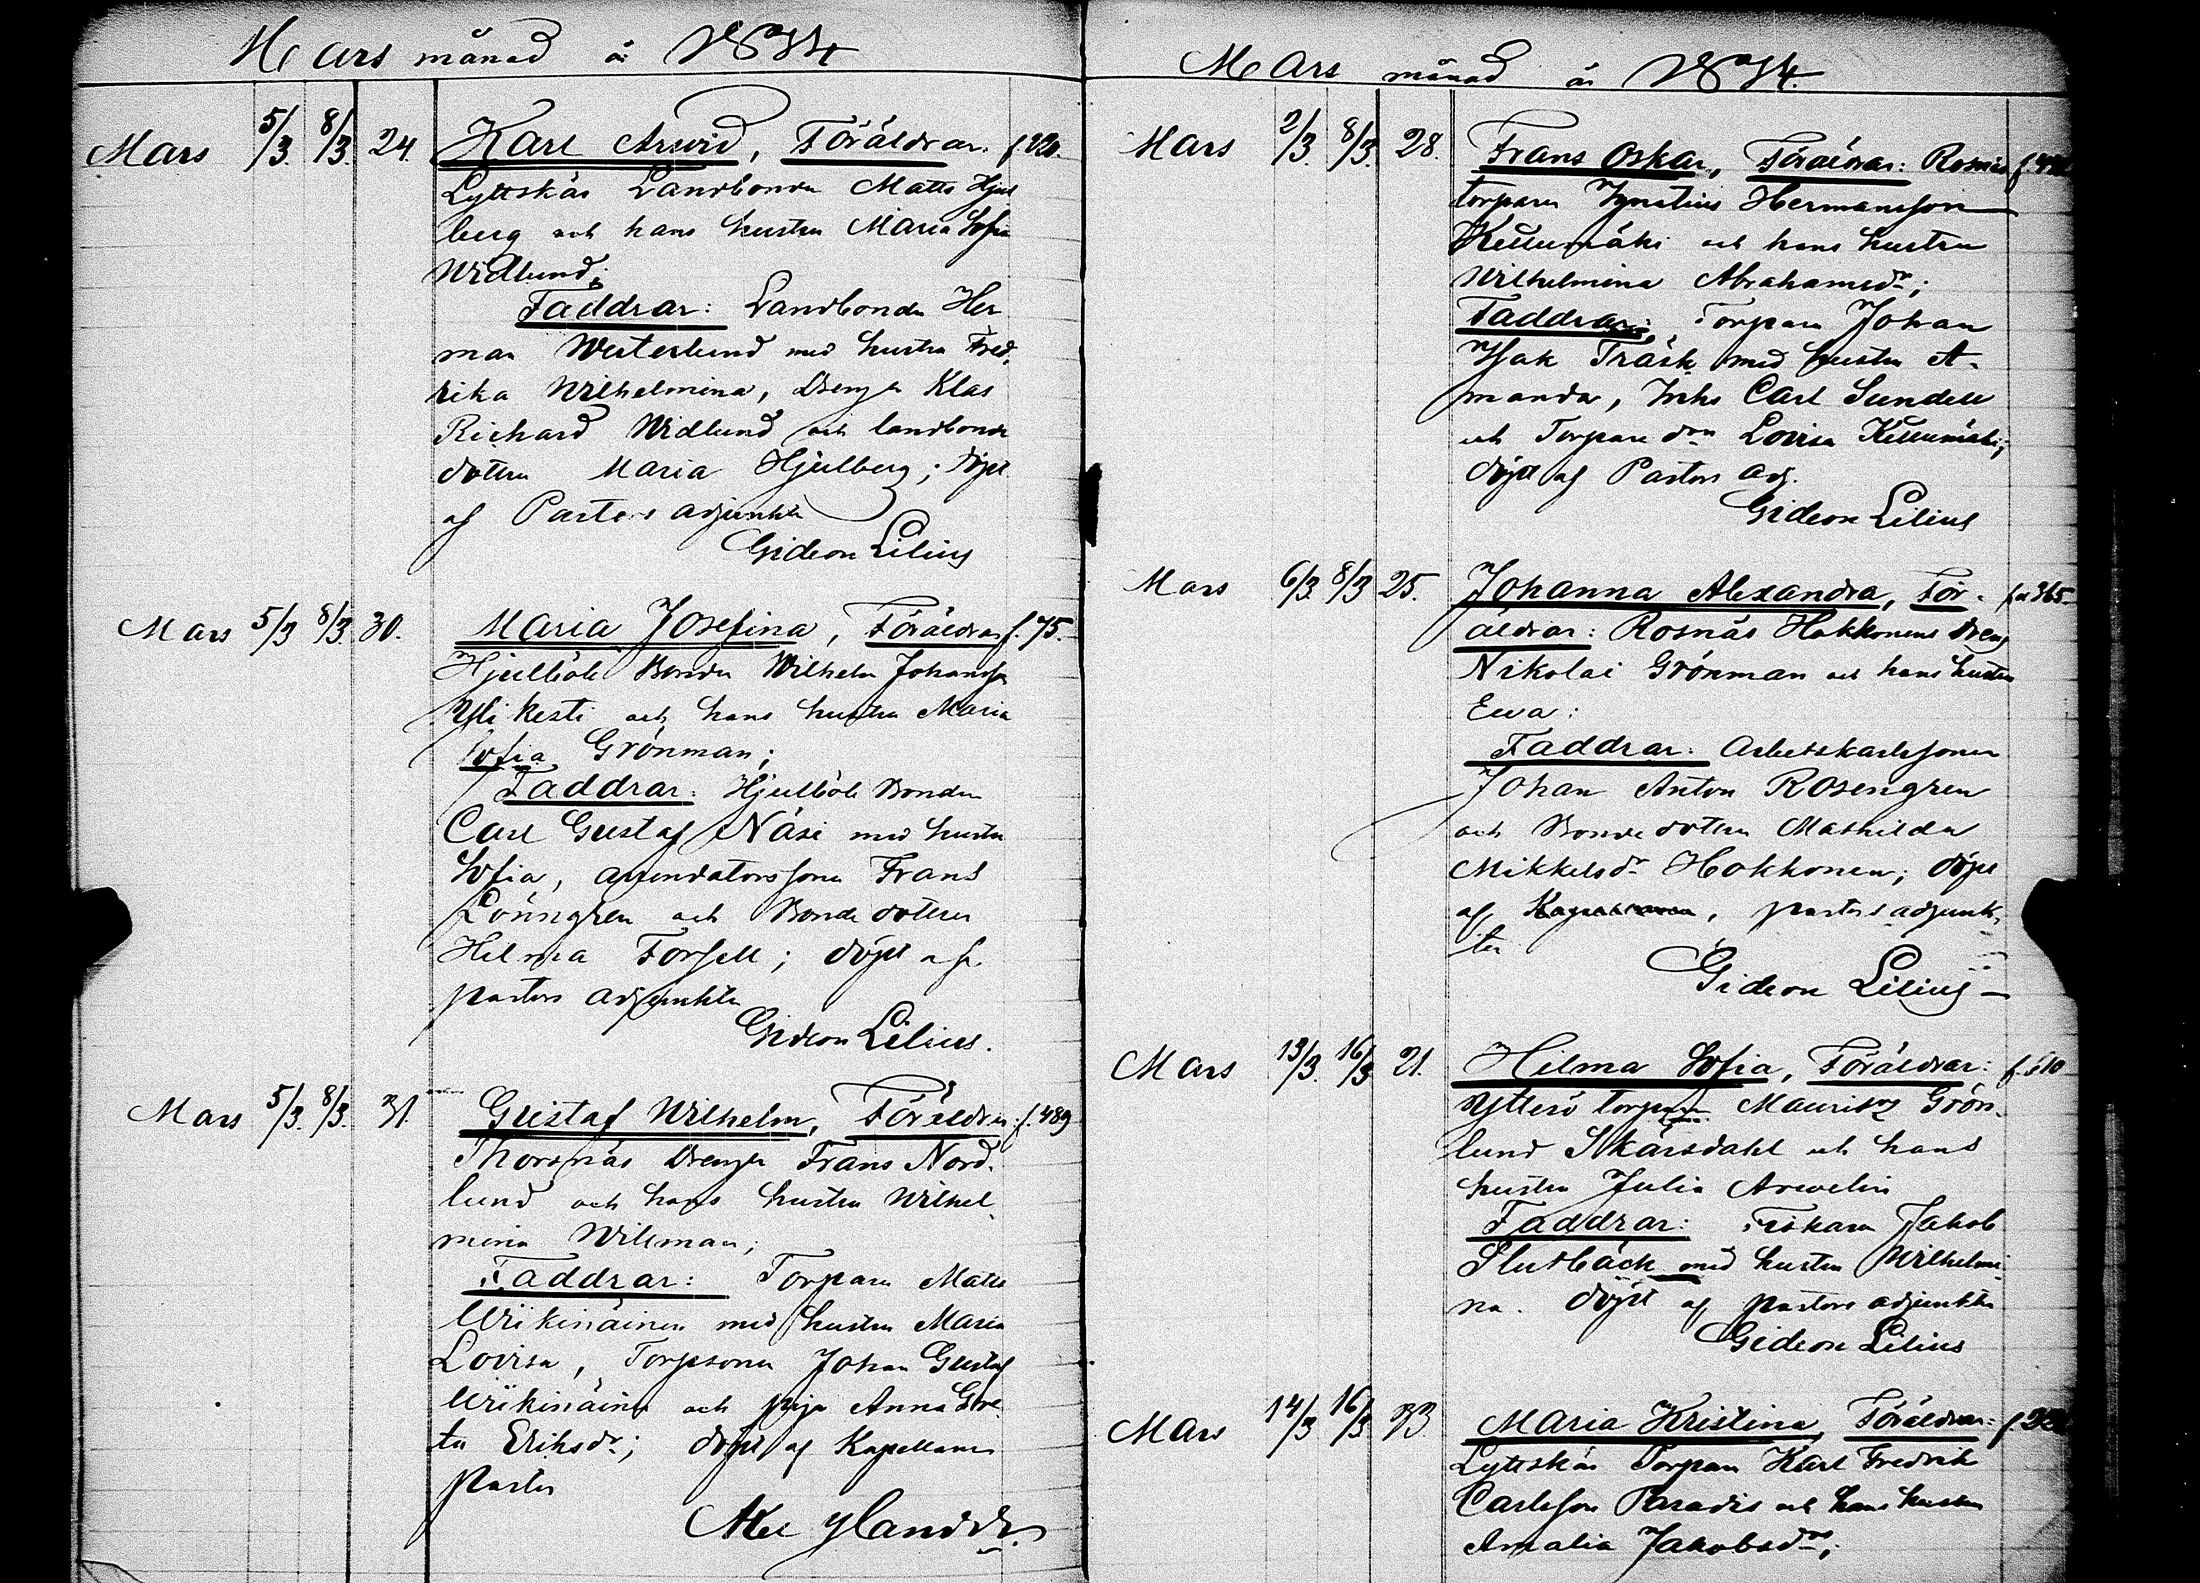 Mars månad år 1884
Mars 5/3 8/3 24. Karl Arwid, Föräldrar: f. 120.
Lyttskär Landbonden Matts Hjul
berg och hans hustru Maria Sofia
Widlund;
Faddrar: Landbonden Her
man Westerlund med hustru Fred,
rika Wilhelmina, Drengen Klas
Richard Widlund och landbonde
dottren Maria Hjulberg; döpt
af Pastors adjunkten
Gideon Lilius
Mars 5/3 8/3 30. Maria Josefina, Föräldrar f. 75.
Hjulböle Bonden Wilhelm Johansson
Yli kesti och hans hustru Maria
Sofia Grönman;
Faddrar: Hjulböle Bonden
Carl Gustaf Näsi med hustru
Sofia, arrendatorssonen Frans
Lönngren och Bonde dottren
Hilma Forsell; döpt af
pastors adjunkten
Gideon Lilius.
Mars 5/3. 8/3. 31. Gustaf Wilhelm, Föräldrar: f. 489
Thorsnäs Drengen Frans Nord-
lund och hans hustru Wilhel-
mina Willman;
Faddrar: Torparen Matts
Wiikinäinen med hustru Maria
Lovisa, Torpsonen Johan Gustaf
Wiikinäinen och piga Anna Gre-
ta Eriksdr; döpt af Kapellanen
Pastor
Mars månad år 1884.
Mars 2/3. 8/3. 28. Frans Oskar, Föräldrar: Rosnäs
torparen Ignatius Hermansson
Kullumäki och hans hustru
Wilhelmina Abrahamsdr;
Faddrar: Torparen Johan
Isak Träsk med hustru A-
manda, Carl Sundell
och Torpare drn Lovisa Kullumäki;
döpt af Pastors adj.
Gideon Lilius
Mars 6/3. 8/3 25. Johanna Alexandra, För- 365.
äldrar: Rosnäs Hokkonens dreng
Nikolai Grönman och hans hustru
Ewa:
Faddrar: Arbetskarlssonen
Johan Anton Rosengren
och Bonde dottren Mathilda
Mikkelsdr Hokkonen; döpt
af Kapellanen, pastors adjunk-
ten
Gideon Lilius
Mars 13/3. 16/3 21. Hilma Sofia, Föräldrar: f. 510
Ytterö torparen Mauritz Grön-
lund Skärsdahl och hans
hustru Julia Arwelin
Faddrar: Fiskaren Jakob
Slutbäck med hustru Wilhelmi-
na. döpt af pastors adjunkten
Gideon Lilius
Mars 14/3 16/3 33 Maria Kristina, Föräldrar:
Lyttskär Torparen Karl Fredrik
Carlsson Paradis och hans hustru
Amalia Jakobsdr;